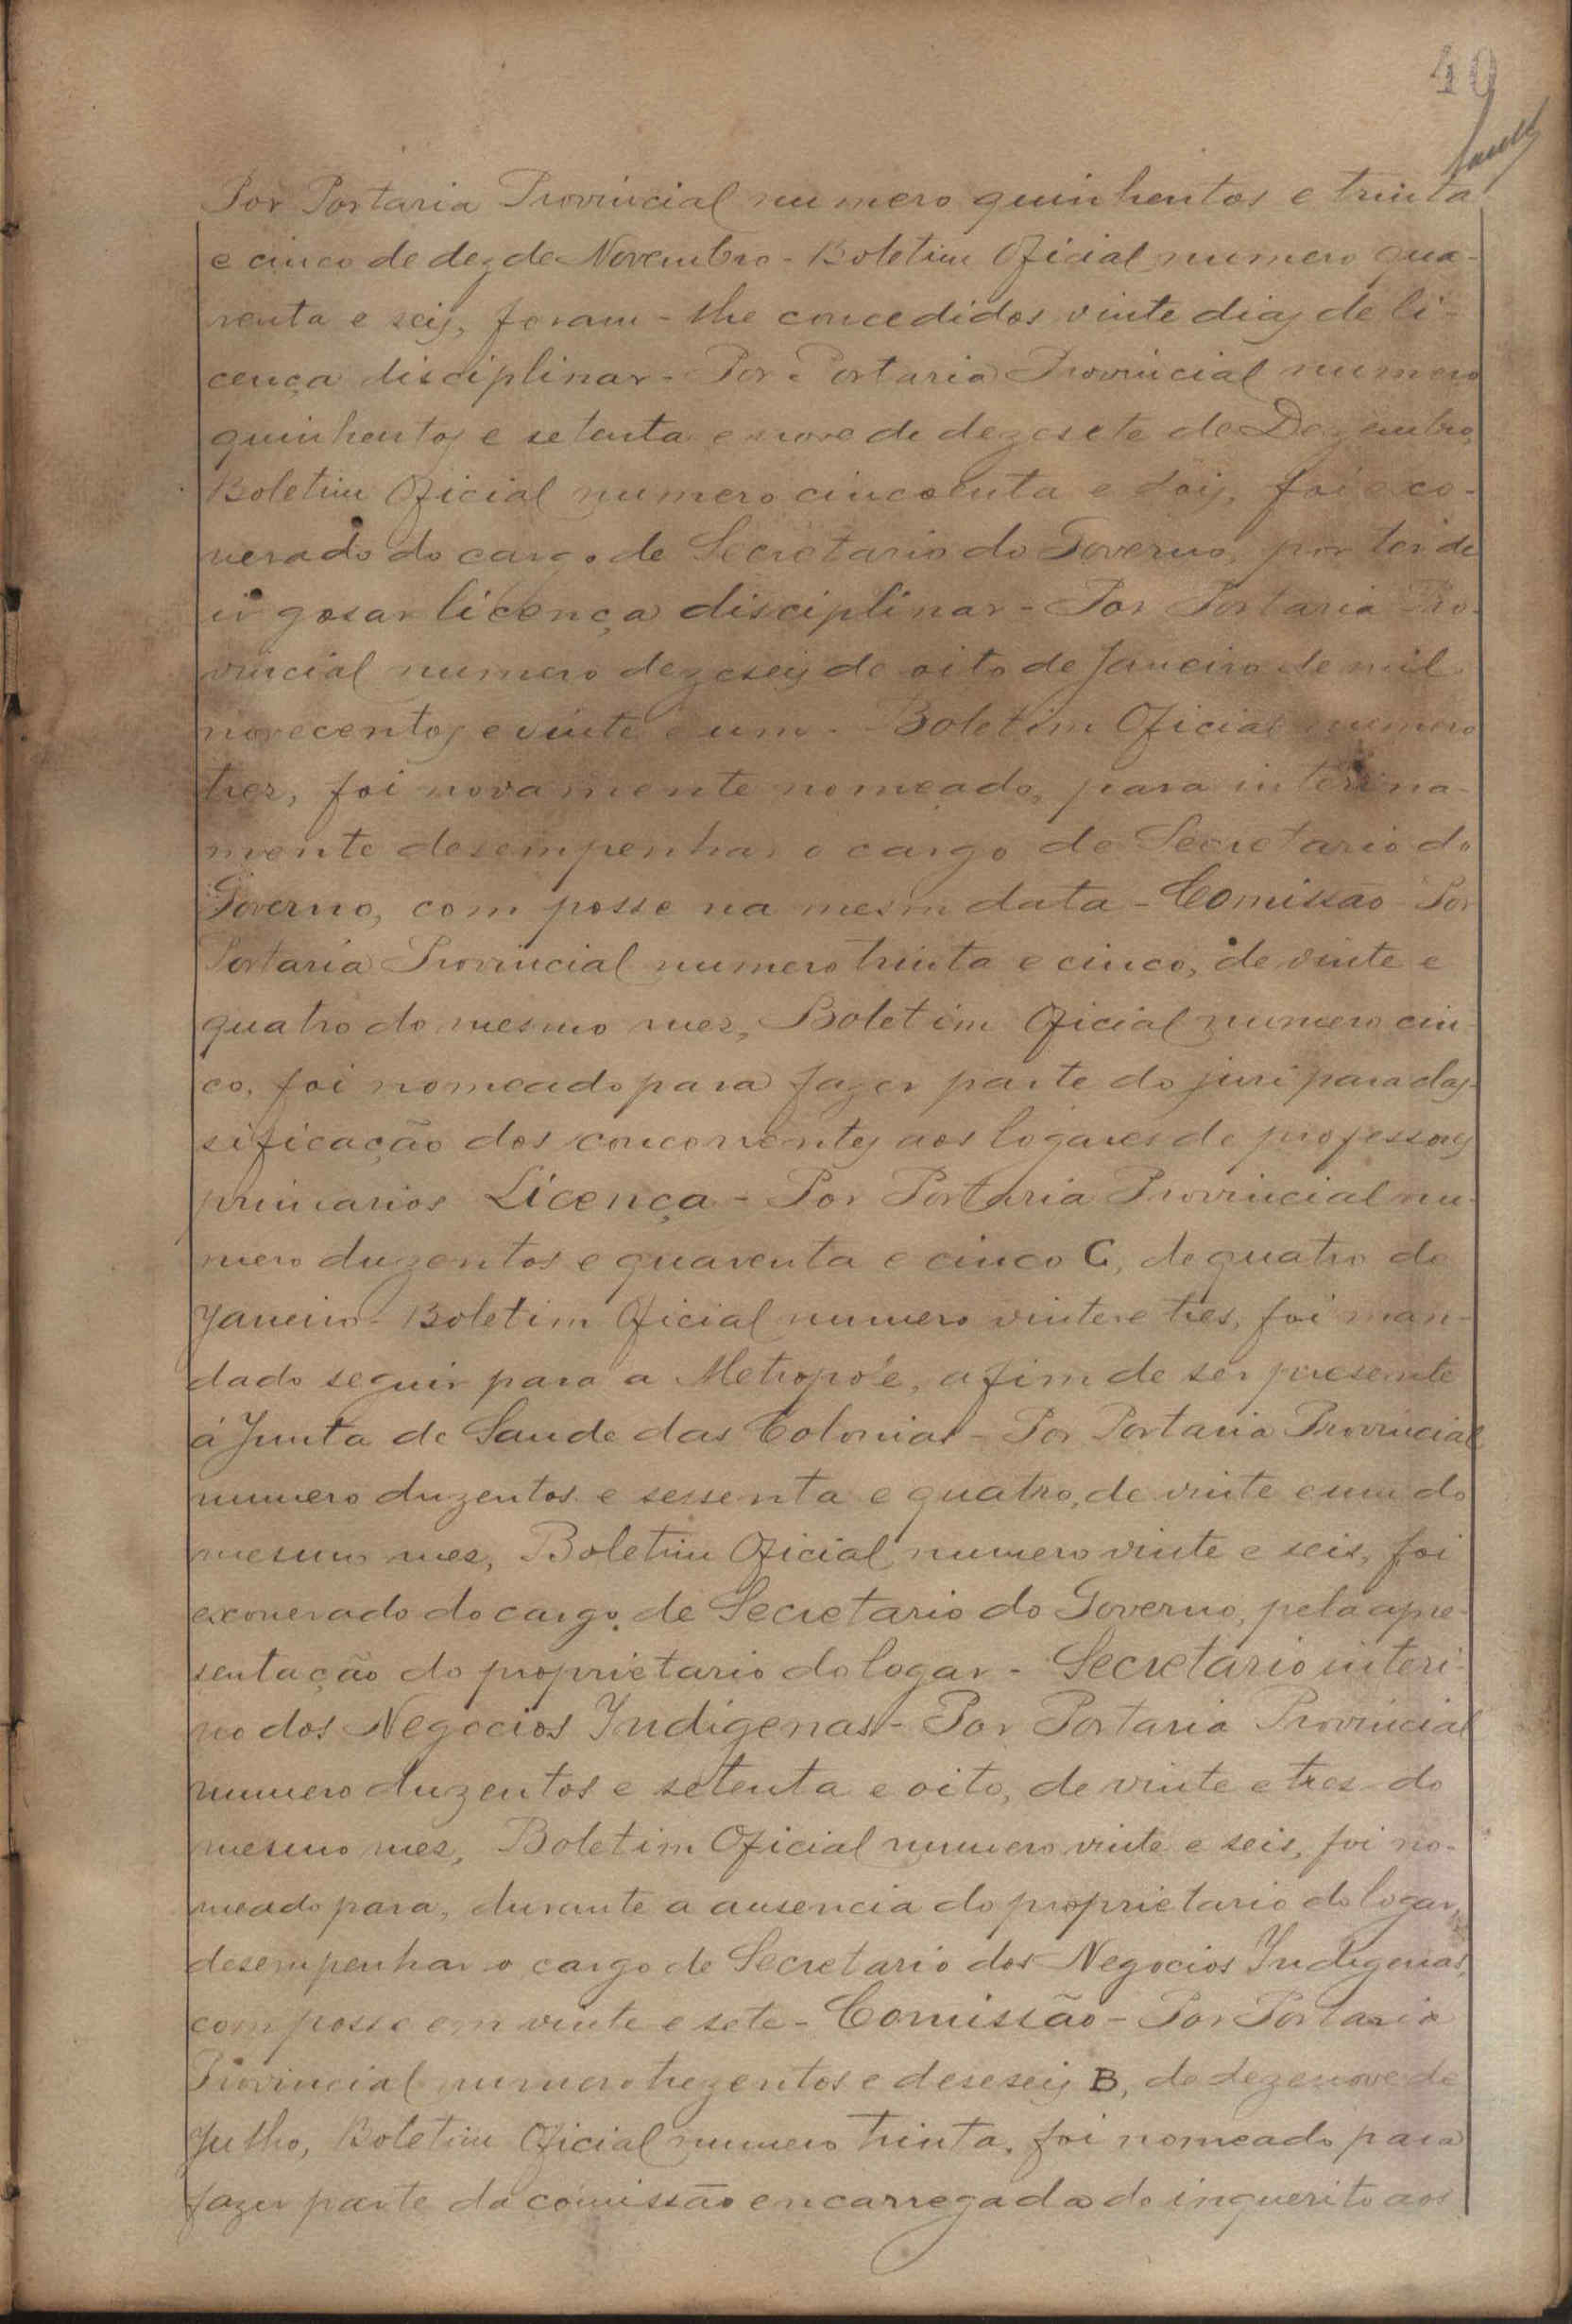 40
Por Portaria Provincial numero quinhentos e trinta
e cinco de dez de Novembro - Boletim Oficial numero qua-
renta e seis, foram-lhe concedidos vinte dias de li-
cença disciplinar - Por Portaria Provincial numero
quinhentos e setenta e nove de dezesete de Dezembro,
Boletim Oficial numero cincoenta e dois, foi exo-
nerado do cargo de Secretario do Governo, por ter de
ir gosar licença disciplinar - Por Portaria Pro-
vincial numero dezeseis de oito de Janeiro de mil
novecentos e vinte e um - Boletim Oficial numero
tres, foi novamente nomeado, para interina-
mente desempenhar o cargo de Secretario do
Governo, com posse na mesm data - Comissao - Por
Portaria Provincial numero trinta e cinco, de vinte e
quatro do mesmo mez, Boletim Oficial numero cin-
co, foi nomeado para fazer parte do juri para clas-
sificação dos concorrentes aos logares de professores
primarios Licença - Por Portaria Provincial nu-
mero duzentos e quarenta e cinco C, de quatro de
Janeiro - Boletim Oficial numero vinte e tres, foi man-
dado seguir para a Metropóle, afim de ser presente
á Junta de Saude das Colonias - Por Portaria Provincial
numero duzentos e sessenta e quatro, de vinte e um do
mesmo mez, Boletim Oficial numero vinte e seis, foi
exonerado do cargo de Secretario do Governo, pela apre-
sentação do proprietario do logar - Secretario interi-
no dos Negocios Indigenas - Por Portaria Provincial
numero duzentos e setenta e oito, de vinte e tres do
mesmo mez, Boletim Oficial numero vinte e seis, foi no-
meado para, durante a ausencia do proprietario do logar,
desempenhar o cargo de Secretario dos Negocios Indigenas,
com posse em vinte e sete - Comissão - Por Portaria
Provincial numero trezentos e deseseis B, de dezenove de
Julho, Boletim Oficial numero trinta, foi nomeado para
fazer parte da comissão encarregada do inquerito aos